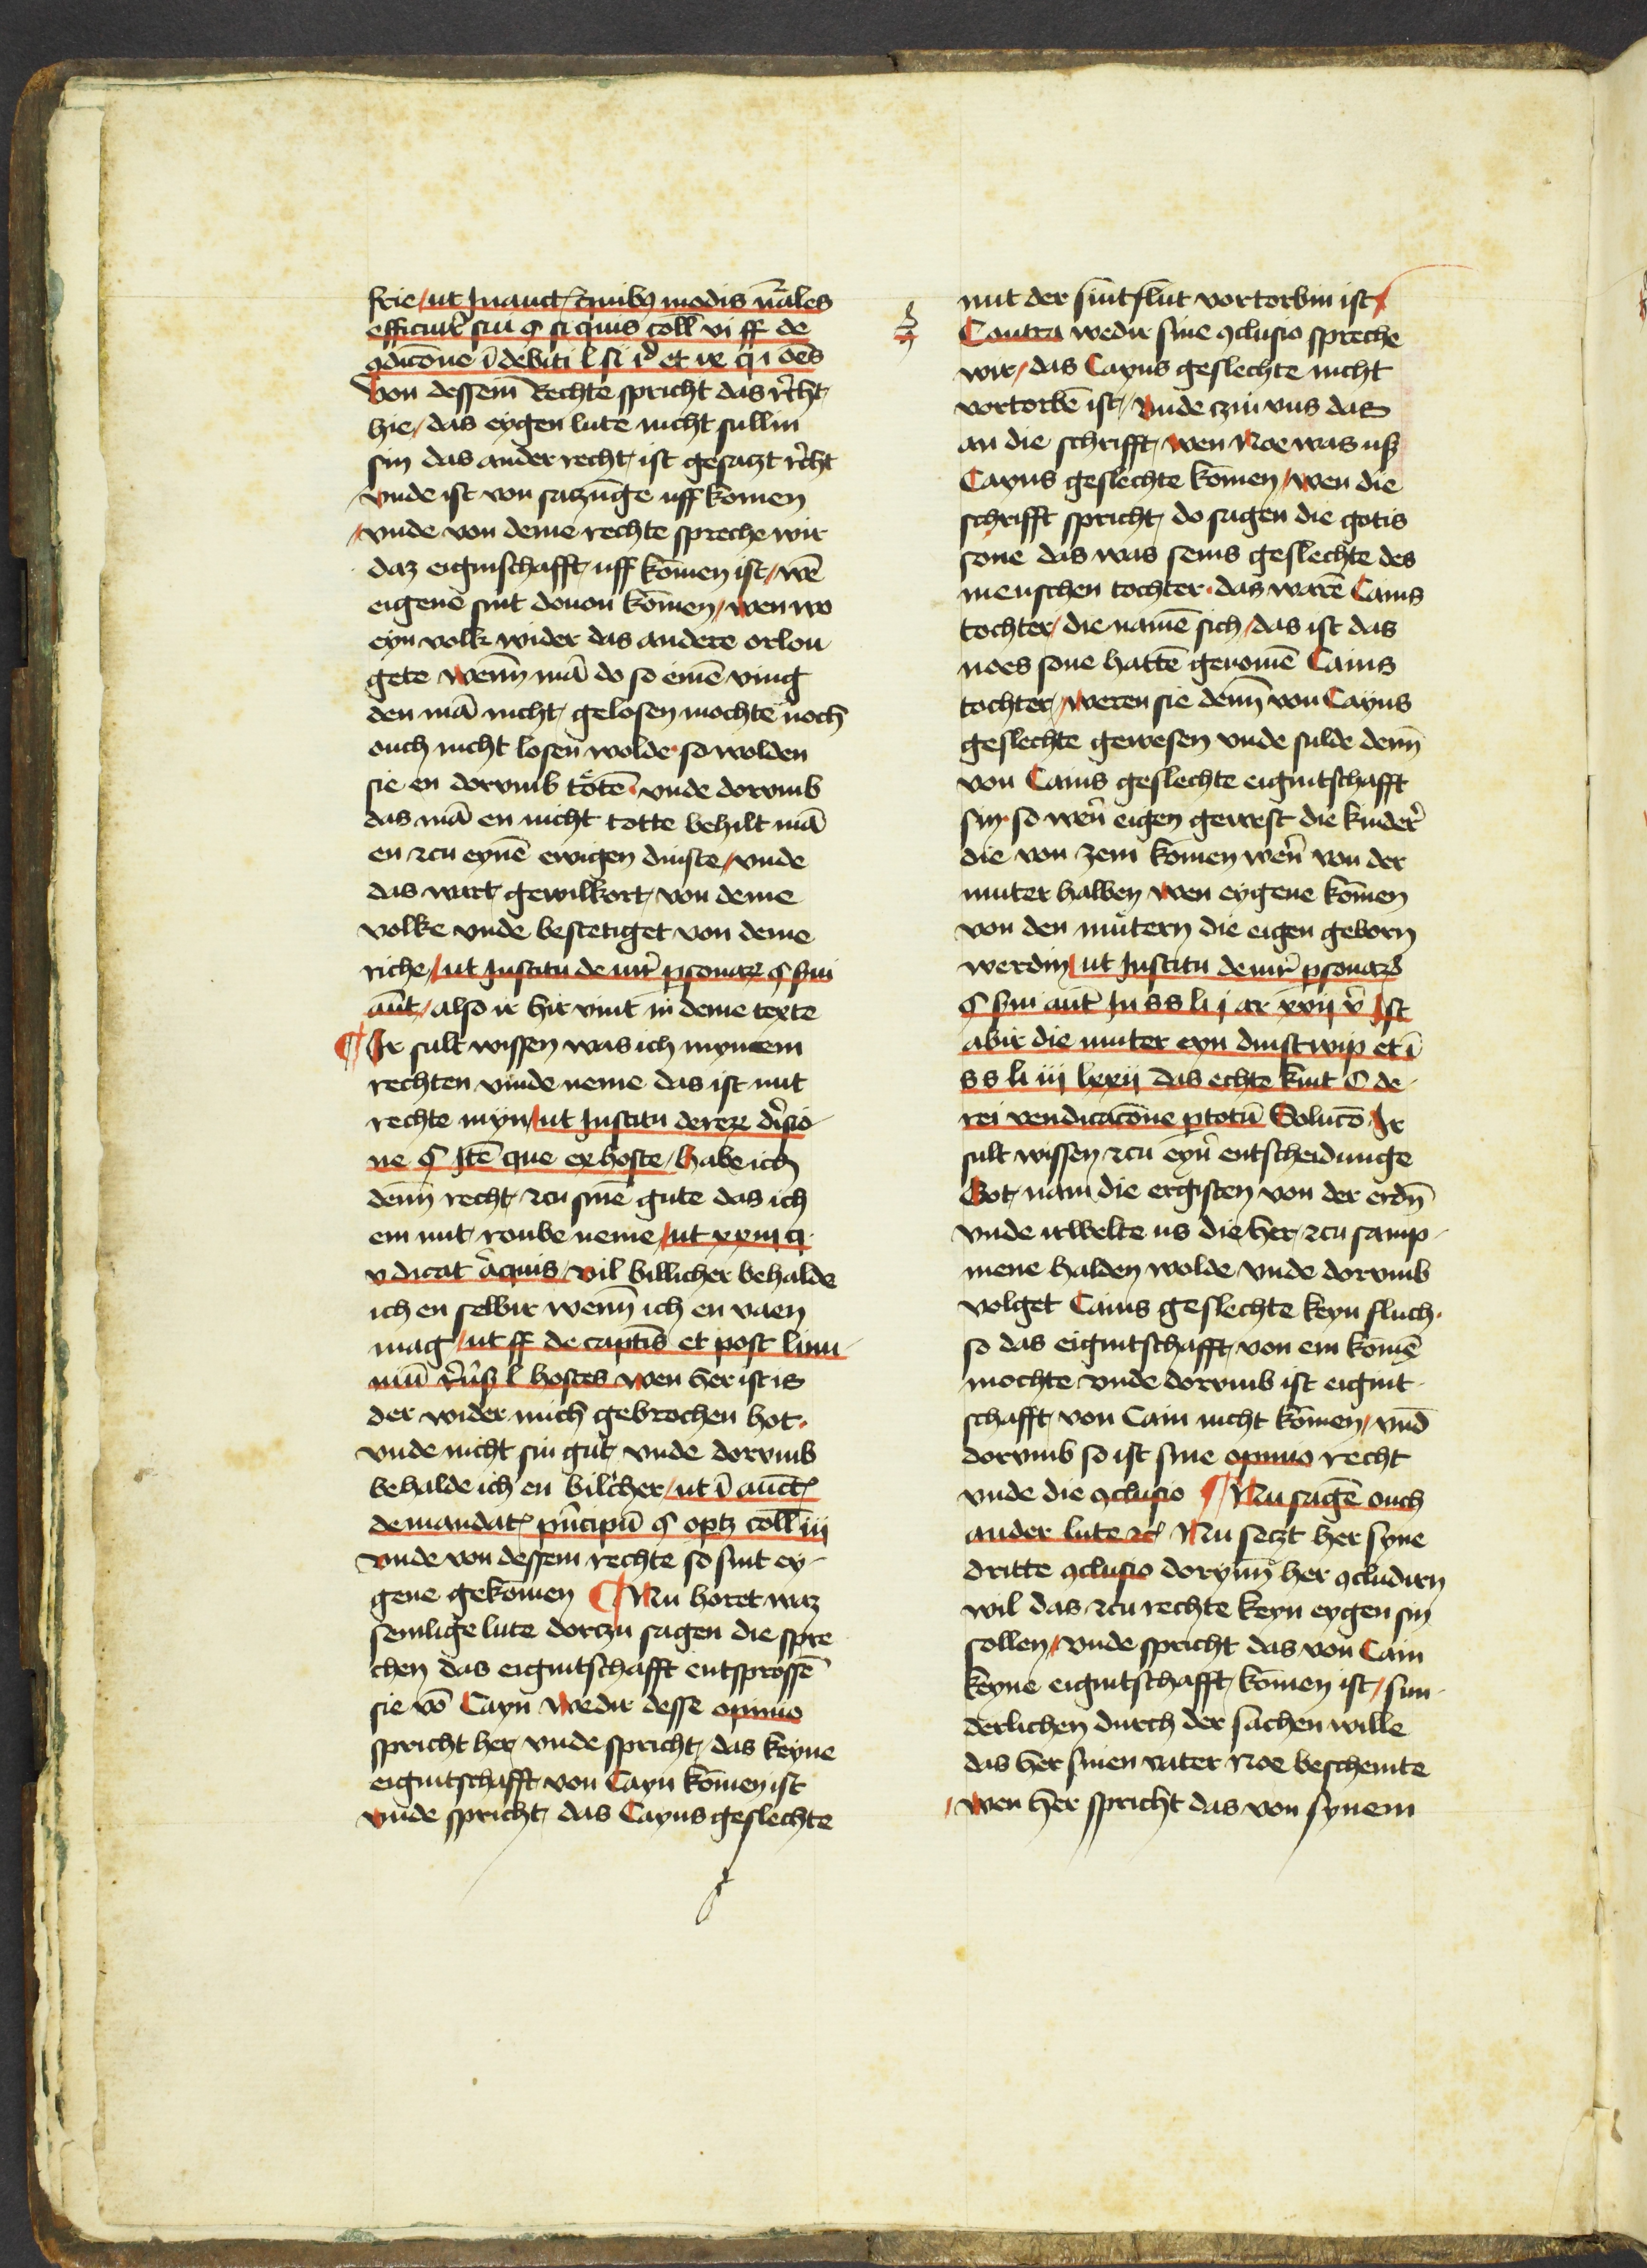 frie / ut Inauct quibꝰ modis nāles
efficiūt sui § si quis coll vi ff de
ꝯdicōne ī debiti l si id et ix q i oēs
Von dessem Rechte spricht das rcht
hie / das eygen lute nicht sullin
sin das ander recht ist gesaczt rcht
vnde ist von saczūnge uff komen
/ vnde von deme rechte spreche wir
daz eiginschafft uff komen ist / wē
eigene sint douon komen / wen wo
eyn volk wider das andere orlou
gete wenn mā do so einē ving
den mā nicht gelosen mochte noch
ouch nicht losen wolde · so wolden
sie en dorvmb totē · vnde dorvmb
das mā en nicht totte behilt mā
en zcu eynē ewigen dinste / vnde
das wart gewilkort von deme
volke vnde bestetiget von deme
riche / ut Institu de iure ꝑsonaꝝ § ſui
aūt / also ir hir vint in deme texte
¶ Ir sult wissen was ich myntem
rechten vinde neme das ist mit
rechte myn / ut Institu dereꝝ diuisio
ne § Itē que ex hoste / habe ich
denn recht zcu sinē gute das ich
em mit roube neme / ut xxiii q
v dicat aliquis / vil billicher behalde
ich en selbir wenn ich en vaen
mag / ut ff de captis et post limi
niū rūsꝰ l hostes wen her ist is
der wider mich gebrochen hot ·
vnde nicht sin gut vnde dorvmb
behalde ich en bilcher / ut ī auct
demandat pncipū § optꝫ coll iii
vnde von dessem rechte so sint ey
gene gekomen ¶ Nu horet waz
semlige lute dorczu sagen die spre
chen das eigintschafft entsprossē
sie vō Cayn wedir desse opinio
spricht her vnde spricht das keyne
eigintschafft von Cayn komen ist
vnde spricht das Cayns geslechte
mit der sintflut vortorbin ist /
Contra wedir sine ꝯclusio spreche
wir / das Cayns geslechte nicht
vortorbē ist / vnde czu vns das
an die schrifft wen Noe was uß
Cayns geslechte komen / wen die
schrifft spricht do sagen die gotis
sone das was sems geslechte des
menschen tochter · das warē Cains
tochter / die namē sich / das ist das
noes sone hattē genomē Cains
tochter / weren sie denn von Cayns
geslechte gewesen vnde sulde denn
von Cains geslechte eigintschafft
sin · so wern eigen gewest die kinder
die von zem komen wern von der
muter halben wen eygene komen
von den mutern die eigen geborn
werdin / ut Institu de iure ꝑsonaꝝ
§ ſui aut In s s li i ar xvij v Ist
abir die muter eyn dinstwip et ī
s s li iij lxxij das echte kint C de
rei vendicacōne ꝑ totū Solucō Ir
sult wissen zcu eyner entscheidunge
Got nam die ergisten von der erdn
vnde irwelte us die her zcu samp
mene halden wolde vnde dorvmb
volget Cains geslechte keyn fluch ·
so das eigintschafft von em komē
mochte vnde dorvmb ist eigint
schafft von Cain nicht komen / vnd
dorvmb so ist sine opinio recht
vnde die ꝯclusio ¶ Nu sagē ouch
ander lute ꝛc Nu seczt her syne
dritte ꝯclusio dorynn her ꝯcludirn
wil das zcu rechte keyn eygen sin
sollen / vnde spricht das von Cain
keyne eigintschafft komen ist / sun
derlichen durch der sachen wille
das her sinen vater Noe beschemte
/ wen her spricht das von synem